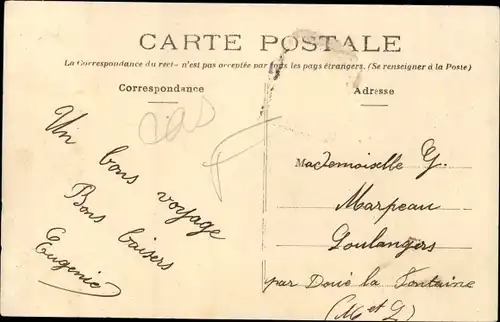 CARTE POSTALE
La Correspondance du recto n'est pas acceptée par tous les pays étrangers. (Se renseigner à la Poste)
Correspondance
Adresse
cas
Un bons voyage
Bons baisers
Eugenie
Mademoiselle G.
Marpeau
Loulangers
par Doué la Fontaine
(M et L)